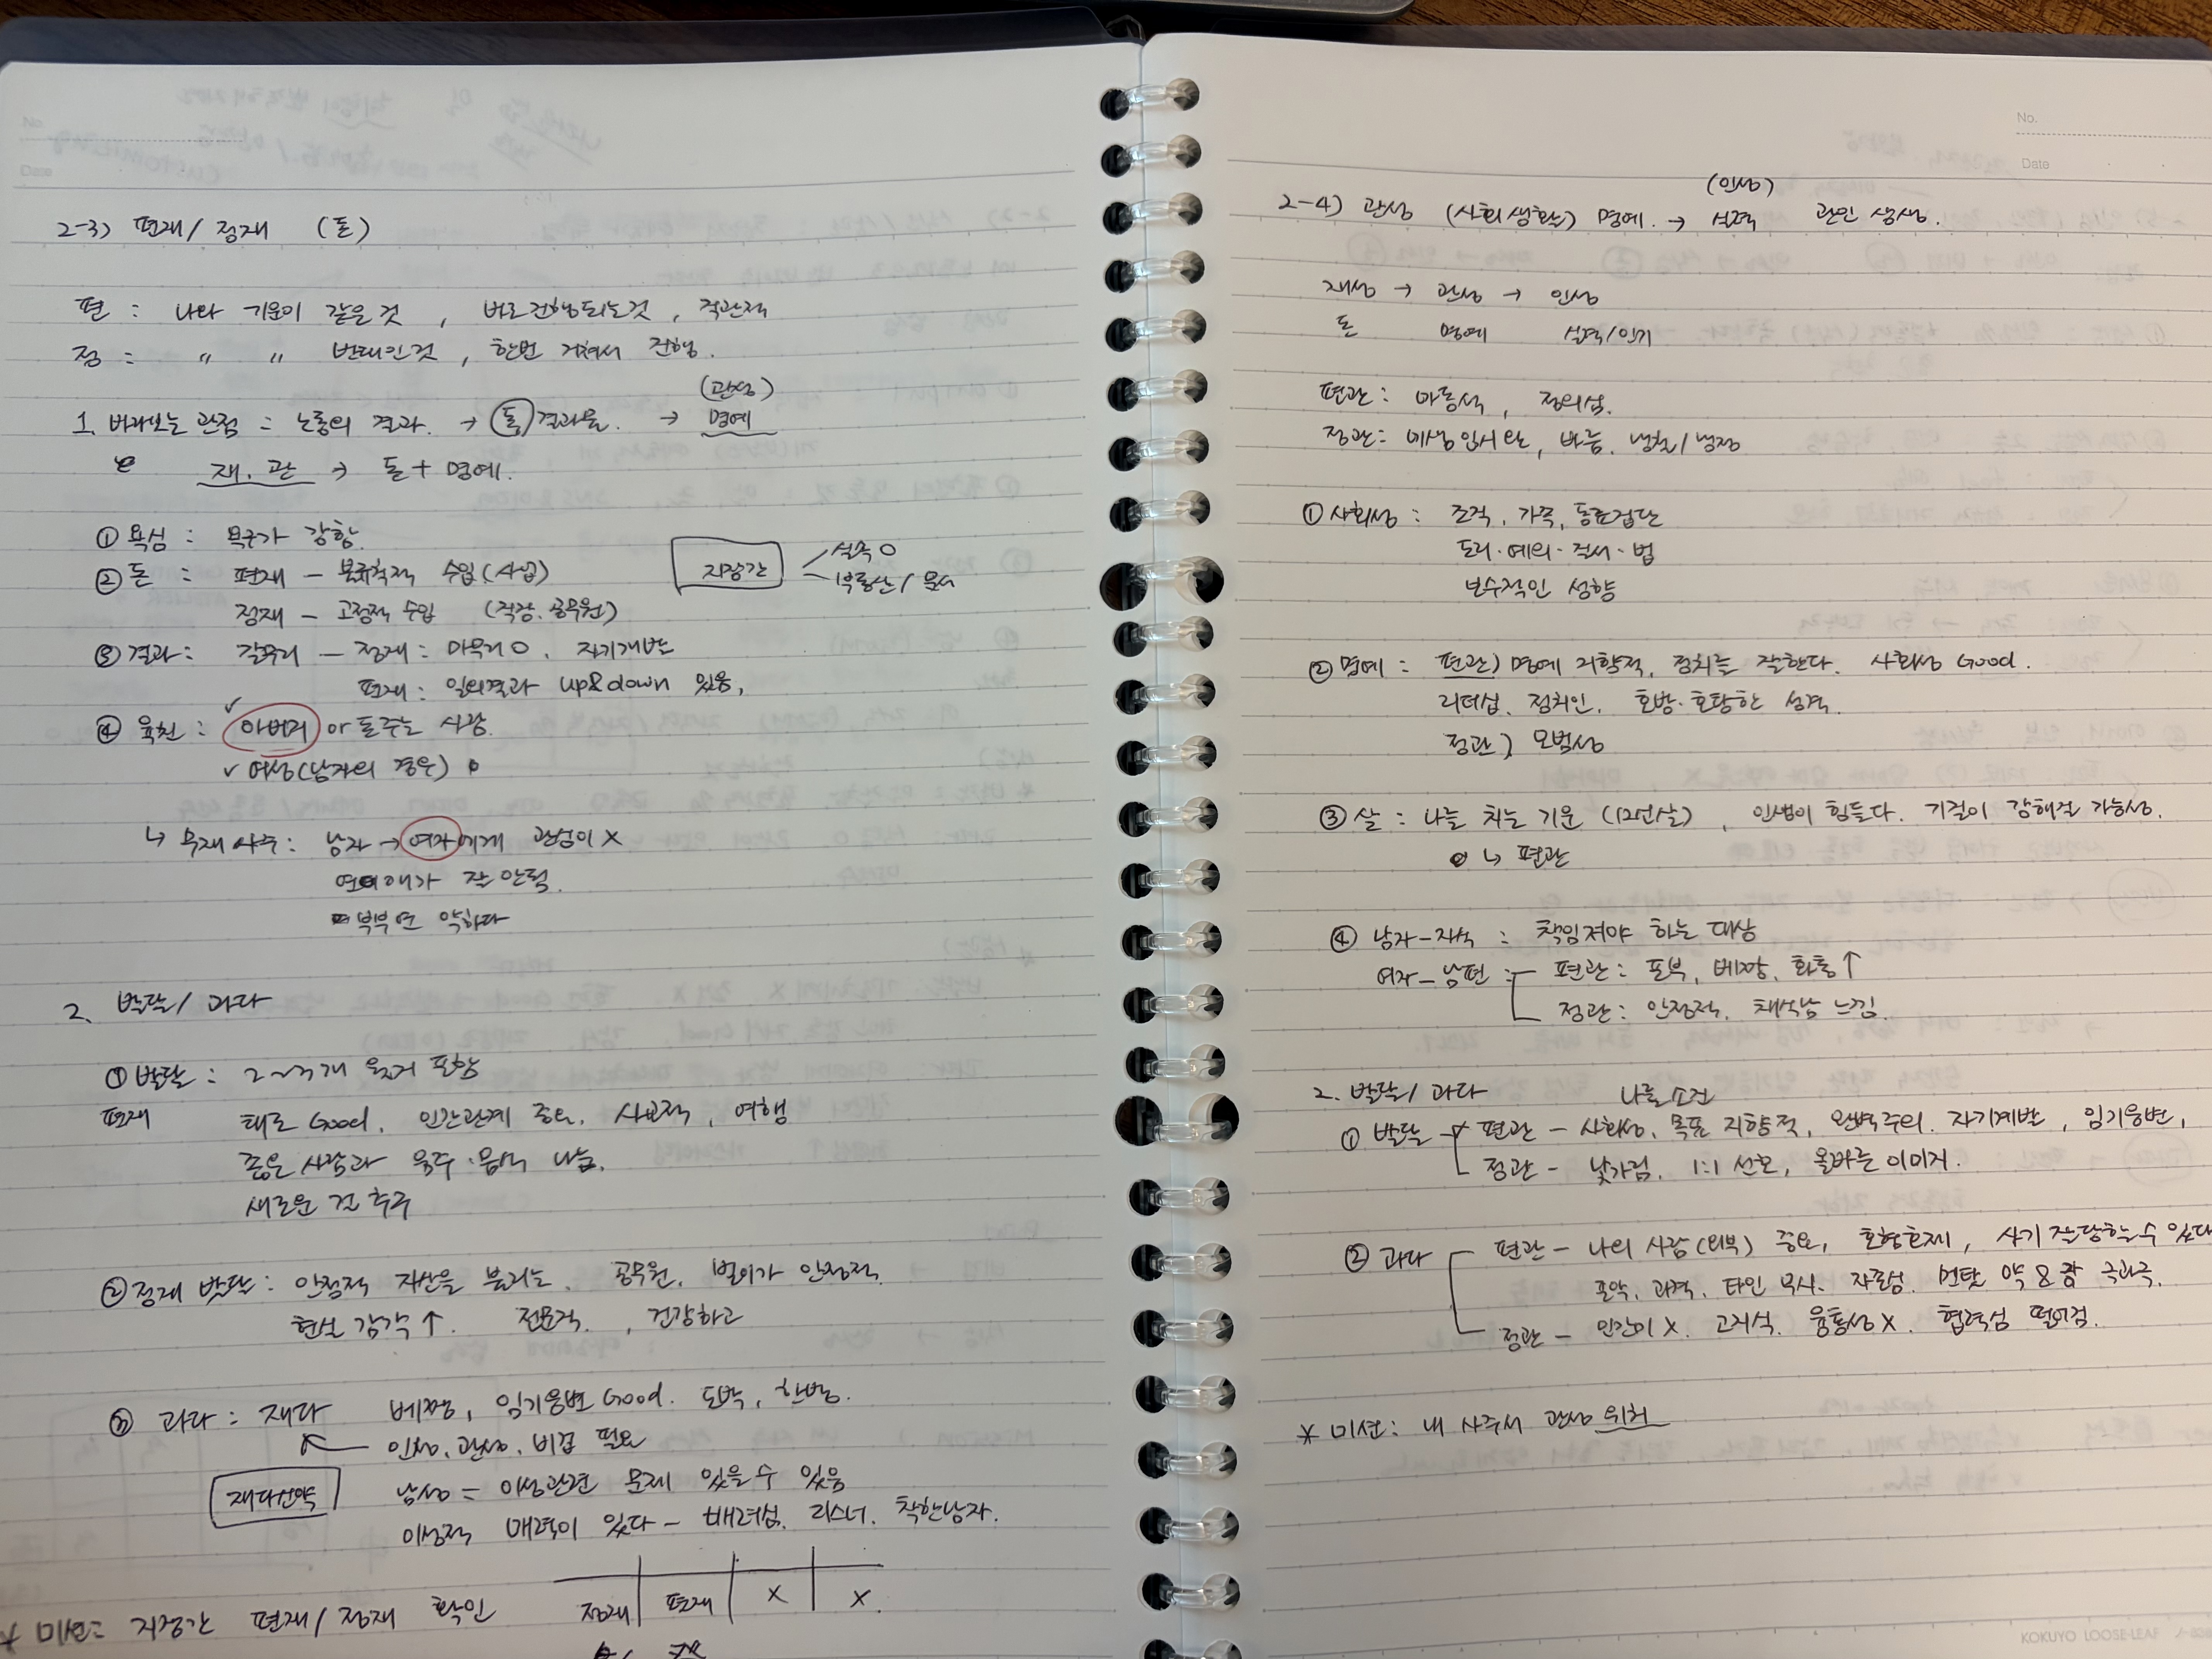 2-3) 편재/정재 (돈)
편 : 나와 기운이 같은 것, 바로 진행되는 것, 직관적
정 : 〃 〃 반대인 것, 한번 거쳐서 진행.
(관성)
1. 바라보는 관점 = 노동의 결과. → 돈 결과물. → 명예
재, 관 → 돈 + 명예.
① 욕심 : 욕구가 강함.
② 돈 : 편재 - 불규칙적 수입(사업)
정재 - 고정적 수입 (직장, 공무원)
지장간
실속 O
부동산/문서
③ 결과 : 갈무리 - 정재 : 마무리 O, 자기개발
편재 : 일의결과 up&down 있음,
④ 육친 : 아버지 or 돈주는 사람.
✓ 여성(남자의 경우)
↳ 무재사주 : 남자 → 여자에게 관심이 X
연애가 잘 안됨.
부부연 약하다
2. 발달/과다
① 발달 : 2~3개 월지 포함
편재 태도 Good, 인간관계 중요, 사교적, 여행
좋은 사람과 음주·음식 나눔.
새로운 것 추구
② 정재 발달 : 안정적 자산을 불리는, 공무원, 벌이가 안정적.
현실 감각↑. 전문적, 건강하고
③ 과다 : 재다 배짱, 임기응변 Good. 도박, 한방.
인성, 관성, 비겁 필요
재다신약
남성 = 이성관련 문제 있을 수 있음
이성적 매력이 있다 - 배려심, 리스너, 착한남자.
* 미션 = 지장간 편재/정재 확인
정재 편재 X X
No.
Date
(인성)
2-4) 관성 (사회생활) 명예. → 실력 관인 상생.
재성 → 관성 → 인성
돈 명예 실력/인기
편관 : 마동석, 정의심.
정관 : 바름. 냉철/냉정
① 사회성 : 조직, 가족, 동료집단
도리·예의·질서·법
보수적인 성향
② 명예 : 편관) 명예 지향적, 정치를 잘한다. 사회성 Good.
리더십, 정치인, 호방·호탕한 성격.
정관) 모범성
③ 살 : 나를 치는 기운 (12신살), 인생이 힘들다. 기질이 강해질 가능성.
↳ 편관
④ 남자-자식 : 책임져야 하는 대상
여자-남편 : 편관 : 포부, 배짱, 활동↑
정관 : 안정적, 책상남 느낌.
2. 발달/과다 나를
① 발달 편관 - 사회성, 목표 지향적, 완벽주의. 자기계발, 임기응변,
정관 - 낯가림, 1:1 선호, 올바른 이미지.
② 과다 편관 - 나의 사람(외부) 중요, 호형호제, 사기 잘 당할 수 있다
포악, 과격, 타인 무시. 자존심. 멘탈 약 & 강 극과극.
정관 - 인간미 X. 고지식. 융통성 X. 협력성 떨어짐.
* 미션 : 내 사주서 관성 위치
KOKUYO LOOSE-LEAF